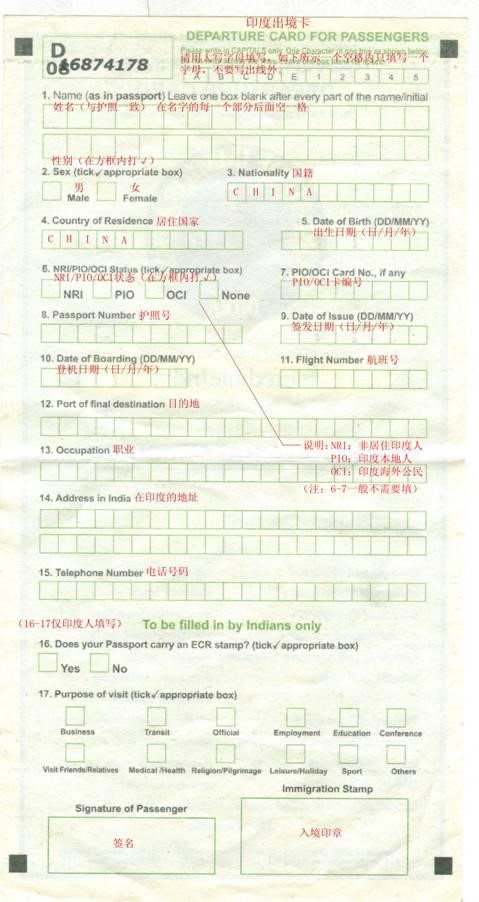 印度出境卡
DEPARTURE CARD FOR PASSENGERS
D
06
16874178
Please write in CAPITALS only. One Character in one box as shown below
请用大写字母填写，如下所示一个空格内只填写一个
字母，不要写出线外。
A B C D E 1 2 3 4 5
1. Name (as in passport) Leave one box blank after every part of the name/initial
姓名（与护照一致） 在名字的每一个部分后面空一格
性别（在方框内打√）
2. Sex (tick✓appropriate box)
男 女
Male Female
3. Nationality 国籍
C H I N A
4. Country of Residence 居住国家
C H I N A
5. Date of Birth (DD/MM/YY)
出生日期（日/月/年）
6. NRI/PIO/OCI Status (tick✓appropriate box)
NRI/PIO/OCI状态（在方框内打√）
NRI PIO OCI None
7. PIO/OCI Card No., if any
PIO/OCI卡编号
8. Passport Number 护照号
9. Date of Issue (DD/MM/YY)
签发日期（日/月/年）
10. Date of Boarding (DD/MM/YY)
登机日期（日/月/年）
11. Flight Number 航班号
12. Port of final destination 目的地
说明：NRI：非居住印度人
PIO：印度本地人
OCI：印度海外公民
（注：6-7一般不需要填）
13. Occupation 职业
14. Address in India 在印度的地址
15. Telephone Number 电话号码
（16-17仅印度人填写） To be filled in by Indians only
16. Does your Passport carry an ECR stamp? (tick✓appropriate box)
Yes No
17. Purpose of visit (tick✓appropriate box)
Business Transit Official Employment Education Conference
Visit Friends/Relatives Medical /Health Religion/Pilgrimage Leisure/Holiday Sport Others
Immigration Stamp
Signature of Passenger
签名
入境印章